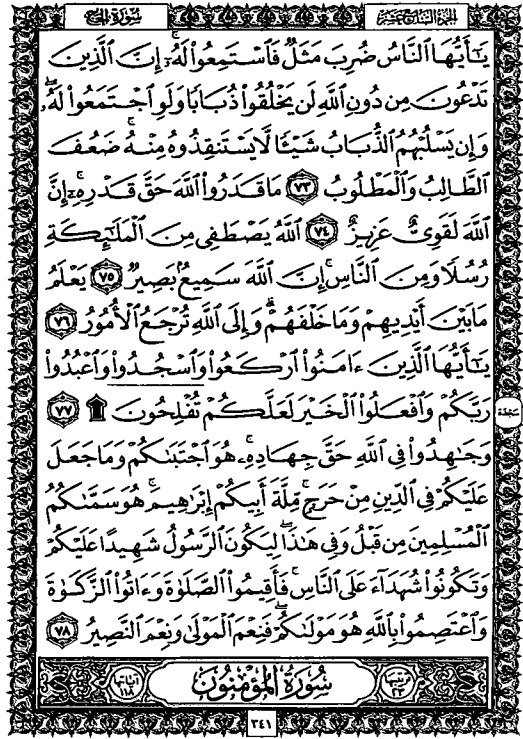 الجزء السابع عشر سورة الحج
يَٰٓأَيُّهَا ٱلنَّاسُ ضُرِبَ مَثَلٌ فَٱسْتَمِعُوا۟ لَهُۥٓ ۚ إِنَّ ٱلَّذِينَ
تَدْعُونَ مِن دُونِ ٱللَّهِ لَن يَخْلُقُوا۟ ذُبَابًا وَلَوِ ٱجْتَمَعُوا۟ لَهُۥ ۖ
وَإِن يَسْلُبْهُمُ ٱلذُّبَابُ شَيْـًٔا لَّا يَسْتَنقِذُوهُ مِنْهُ ۚ ضَعُفَ
ٱلطَّالِبُ وَٱلْمَطْلُوبُ ٧٣ مَا قَدَرُوا۟ ٱللَّهَ حَقَّ قَدْرِهِۦٓ ۗ إِنَّ
ٱللَّهَ لَقَوِىٌّ عَزِيزٌ ٧٤ ٱللَّهُ يَصْطَفِى مِنَ ٱلْمَلَٰٓئِكَةِ
رُسُلًا وَمِنَ ٱلنَّاسِ ۚ إِنَّ ٱللَّهَ سَمِيعٌۢ بَصِيرٌ ٧٥ يَعْلَمُ
مَا بَيْنَ أَيْدِيهِمْ وَمَا خَلْفَهُمْ ۗ وَإِلَى ٱللَّهِ تُرْجَعُ ٱلْأُمُورُ ٧٦
يَٰٓأَيُّهَا ٱلَّذِينَ ءَامَنُوا۟ ٱرْكَعُوا۟ وَٱسْجُدُوا۟ وَٱعْبُدُوا۟
رَبَّكُمْ وَٱفْعَلُوا۟ ٱلْخَيْرَ لَعَلَّكُمْ تُفْلِحُونَ ۩ ٧٧
سجدة
وَجَٰهِدُوا۟ فِى ٱللَّهِ حَقَّ جِهَادِهِۦ ۚ هُوَ ٱجْتَبَىٰكُمْ وَمَا جَعَلَ
عَلَيْكُمْ فِى ٱلدِّينِ مِنْ حَرَجٍ ۚ مِّلَّةَ أَبِيكُمْ إِبْرَٰهِيمَ ۚ هُوَ سَمَّىٰكُمُ
ٱلْمُسْلِمِينَ مِن قَبْلُ وَفِى هَٰذَا لِيَكُونَ ٱلرَّسُولُ شَهِيدًا عَلَيْكُمْ
وَتَكُونُوا۟ شُهَدَآءَ عَلَى ٱلنَّاسِ ۚ فَأَقِيمُوا۟ ٱلصَّلَوٰةَ وَءَاتُوا۟ ٱلزَّكَوٰةَ
وَٱعْتَصِمُوا۟ بِٱللَّهِ هُوَ مَوْلَىٰكُمْ ۖ فَنِعْمَ ٱلْمَوْلَىٰ وَنِعْمَ ٱلنَّصِيرُ ٧٨
ترتيبها ٢٣ سورة المؤمنون آياتها ١١٨
٣٤١